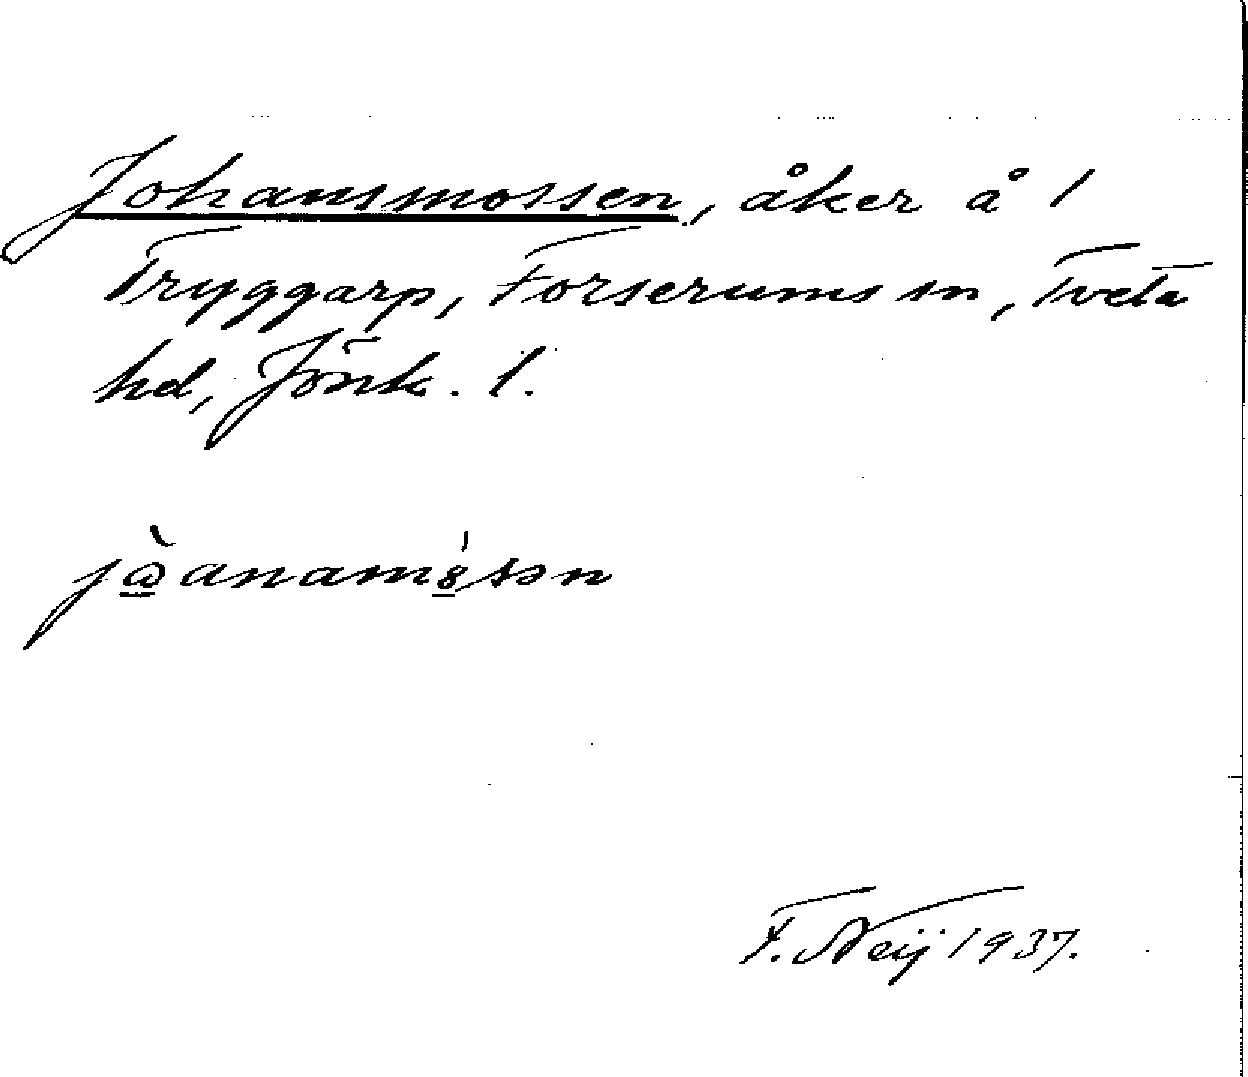 Johansmossen, åker å 1
Tryggarp, Forserums sn, Tveta
hd, Jönk. l.
F. Neij 1937.